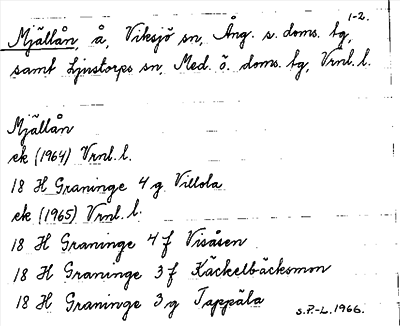 1-2.
Mjällån, å, Viksjö sn, Ång. s. doms. tg,
samt Ljustorps sn, Med. ö. doms. tg, Vrnl. l.
Mjällån
ek (1964) Vrnl. l.
18 H Graninge 4 g Villola
ek (1965) Vrnl. l.
18 H Graninge 4 f Visåsen
18 H Graninge 3 f Käckelbäcksmon
18 H Graninge 3 g Tappäla
S.P.-L. 1966.